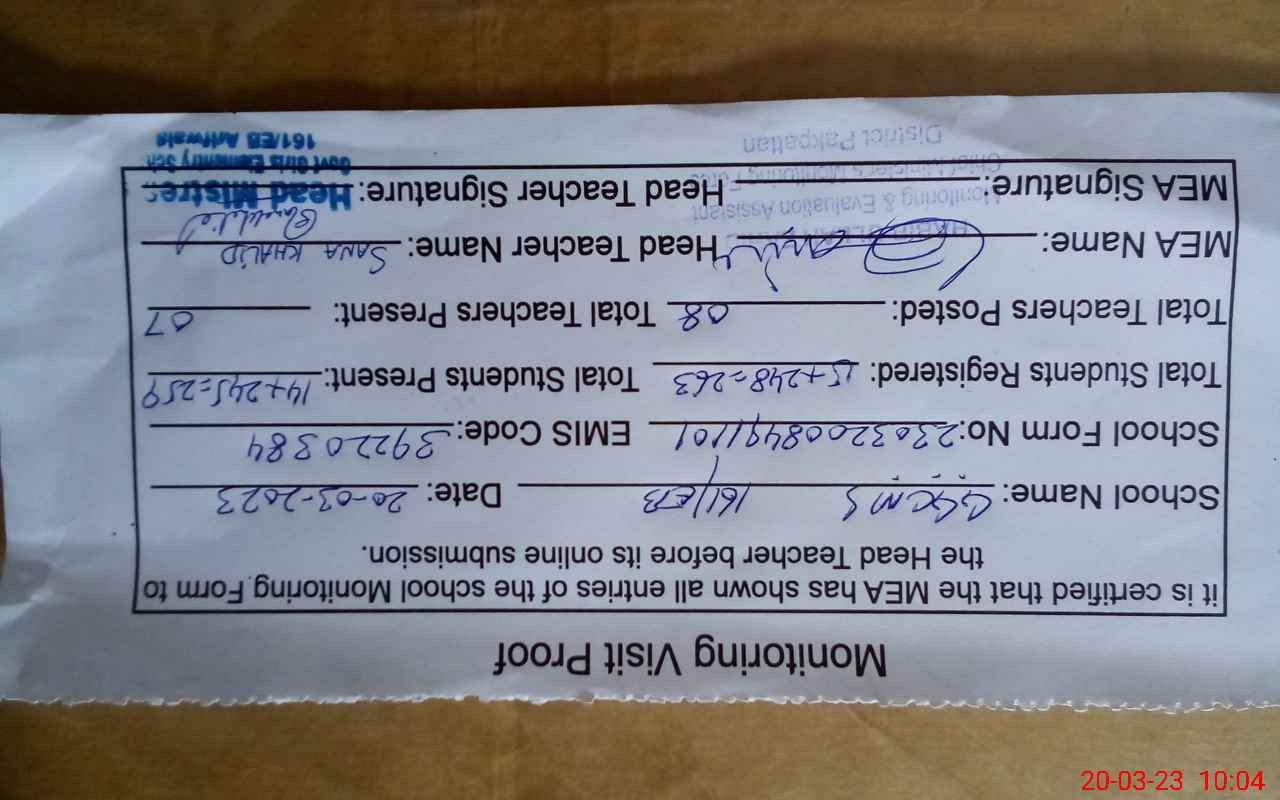 Monitoring Visit Proof
it is certified that the MEA has shown all entries of the school Monitoring Form to
the Head Teacher before its online submission.
School Name: GGCMS 161/EB Date: 20-03-2023
School Form No: 23032008491101 EMIS Code: 39220384
Total Students Registered: 15+248=263 Total Students Present: 14+245=259
Total Teachers Posted: 08 Total Teachers Present: 07
MEA Name: Head Teacher Name: SANA KHALID
MEA Signature: Head Teacher Signature:
Monitoring & Evaluation Assistant
Chief Minister's Monitoring Force
District Pakpattan
Head Mistress
Govt Girls Elementry Sch
161/EB Arifwala
20-03-23 10:04